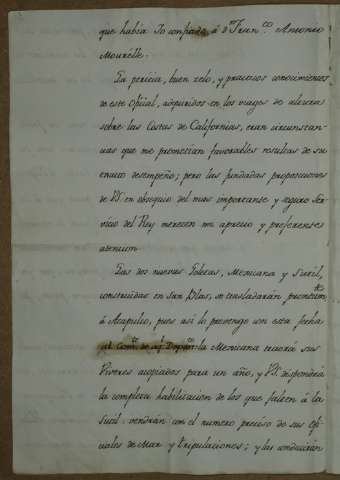 que habia Yo confiado á Dn. Franco. Antonio
Mourelle.
La pericia, buen zelo, y practicos conocimientos
de este Oficial, adquiridos en los viages de alturas
sobre las Costas de Californias, eran circunstan-
cias que me prometian favorables resultas de su
encargo desempeño; pero las fundadas proposiciones
de VS. en obsequio del mas importante y seguro Ser-
vicio del Rey merecen mi aprecio y preferente
atencion.
Las dos nuevas Goletas, Mexicana y Sutil,
construidas en San Blas, se trasladarán prontamte.
á Acapulco, pues asi lo prevengo con esta fecha
al Comte. de aql. Departo. la Mexicana traerá sus
Viveres acopiados para un año, y VS. dispondrá
la completa habilitacion de los que falten á la
Sutil: vendrán con el numero preciso de sus ofi-
ciales de Mar y tripulaciones; y las conducirán